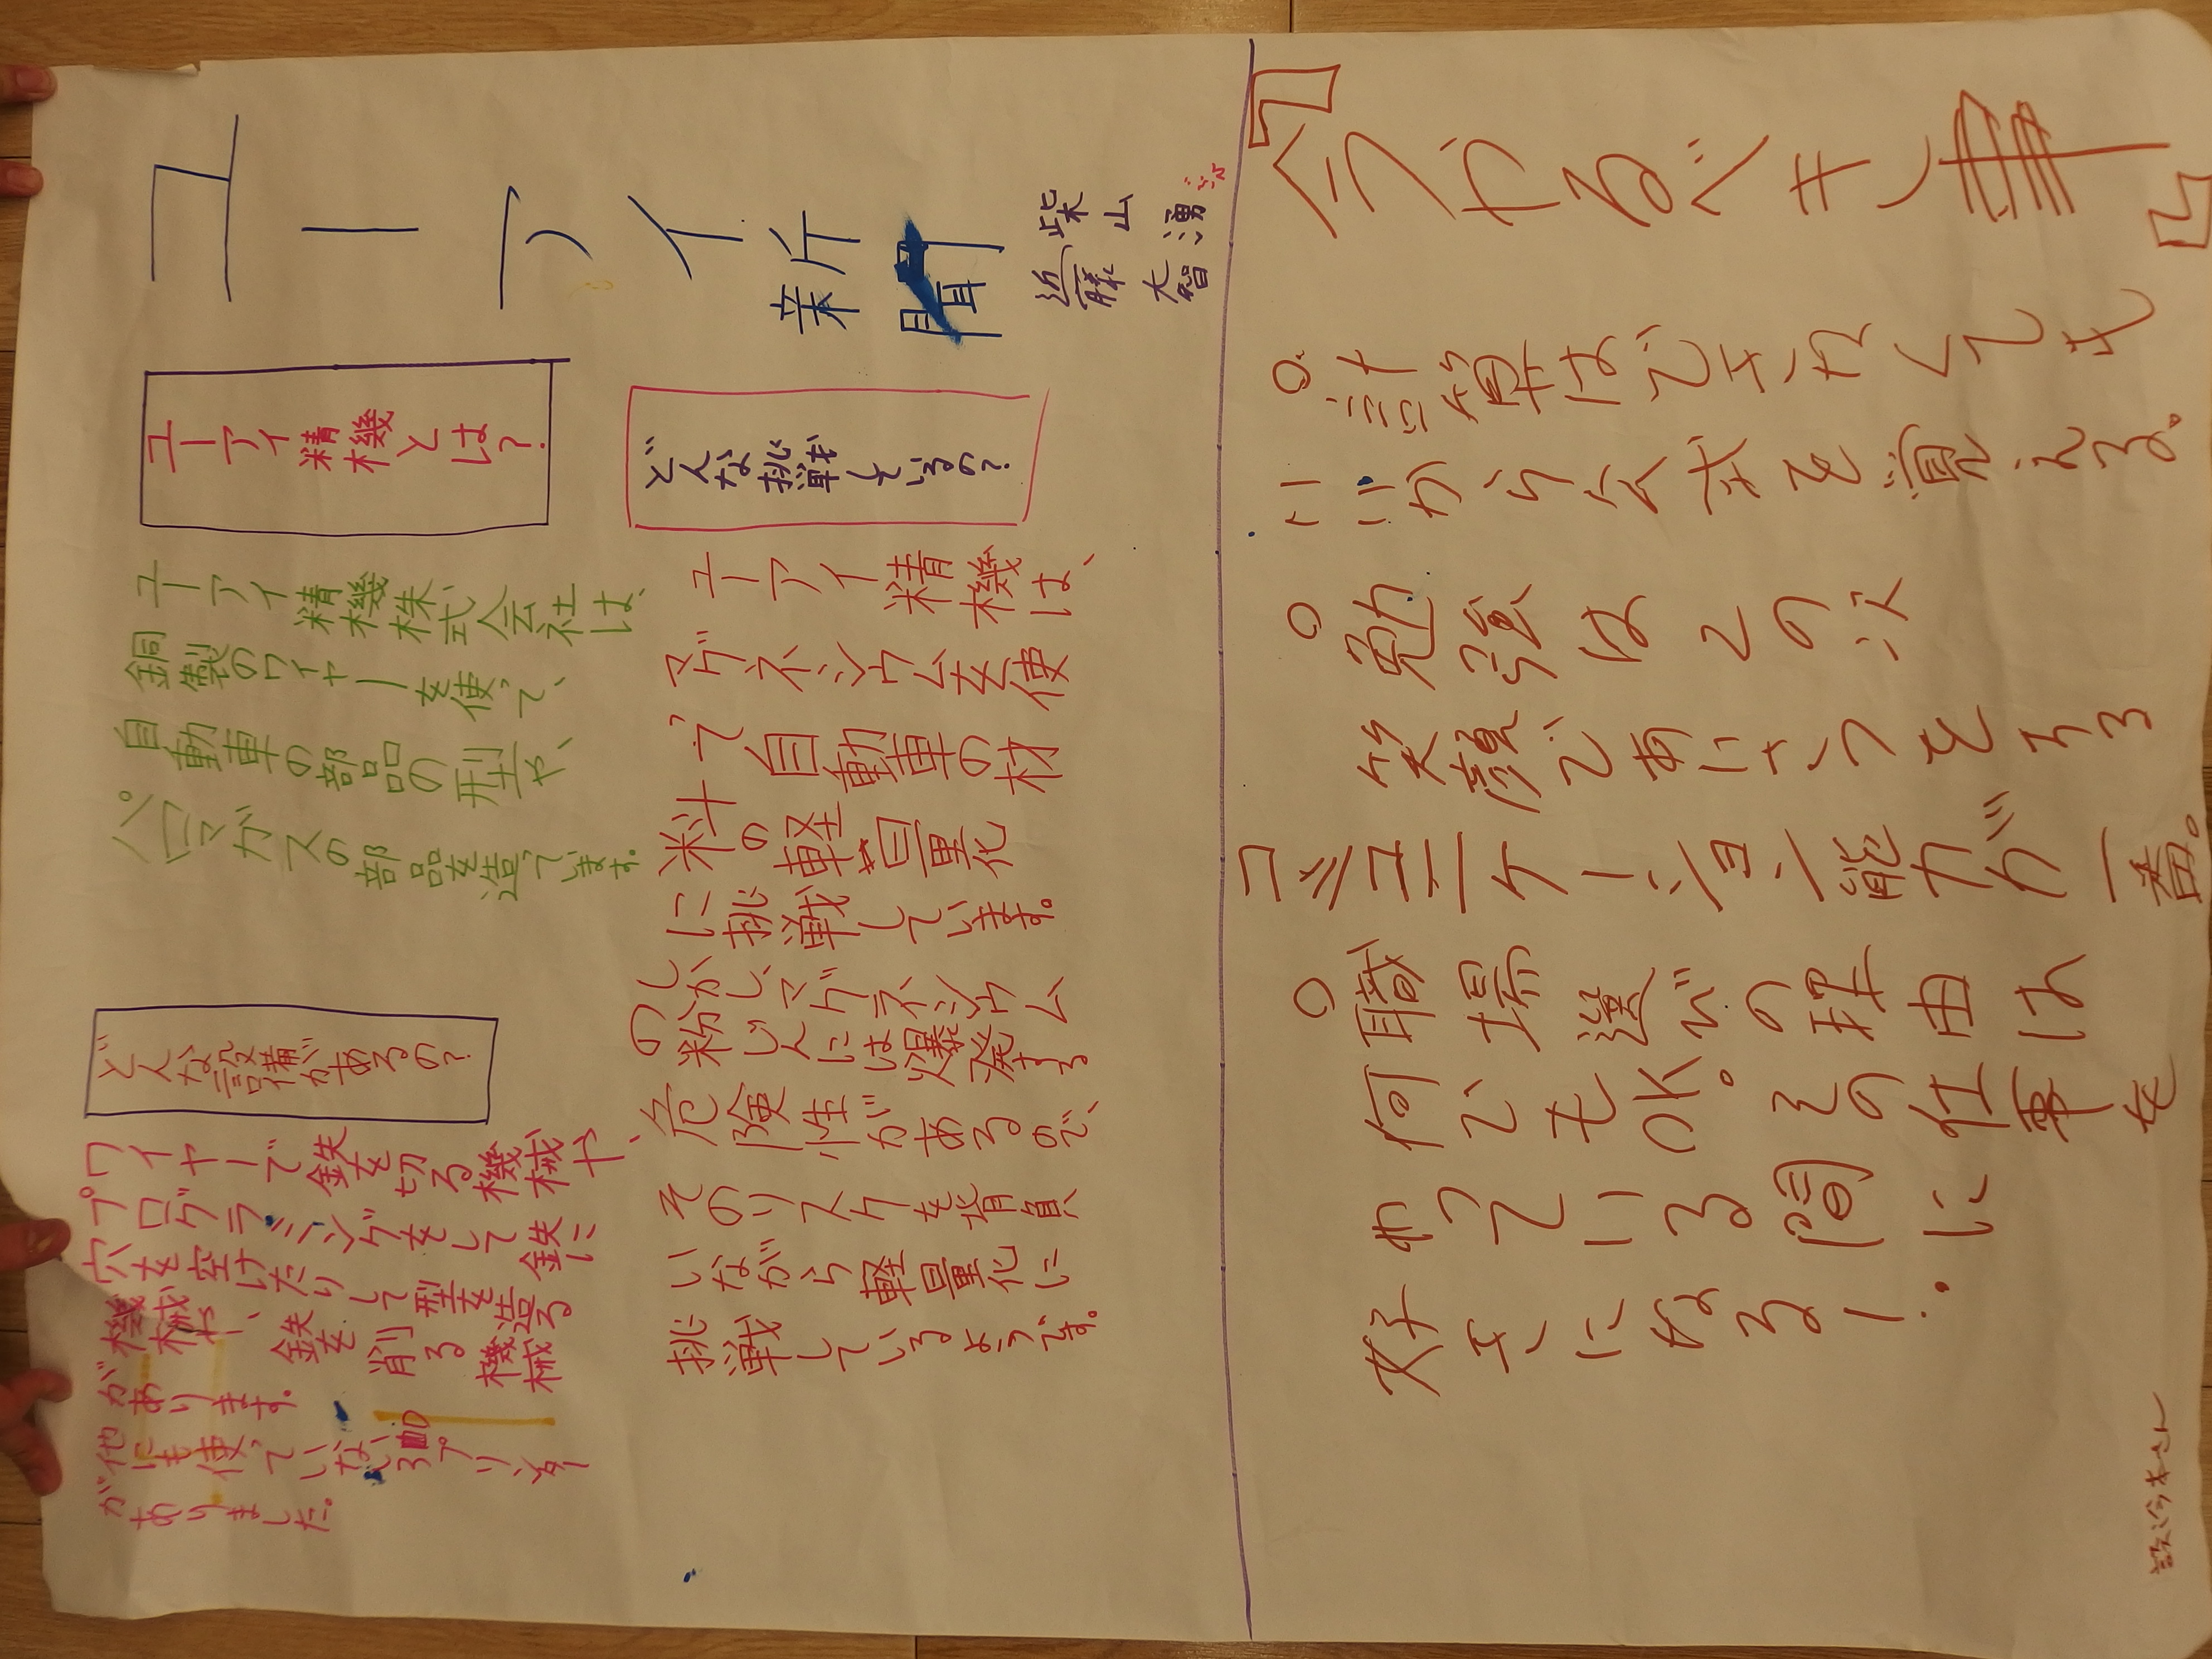 ユーアイ新聞
柴山 湧
近藤 大智
ユーアイ精機とは?
ユーアイ精機株式会社は、
銅製のワイヤーを使って、
自動車の部品の型や、
パロマガスの部品を造っています。
どんな設備があるの?
ワイヤーで鉄を切る機械や、
プログラミングをして鉄に
穴を空けたりして型を造る
機械や、鉄を削る機械
があります。
他にも使っていない3Dプリンター
がありました。
どんな挑戦しているの?
ユーアイ精機は、
マグネシウムを使
って自動車の材
料の軽量化
に挑戦しています。
しかし、マグネシウム
の粉じんには爆発する
危険性があるので、
そのリスクを背負
いながら軽量化に
挑戦しているようです。
『今やるべき事』
○計算はできなくても
いいから公式を覚える。
○勉強はこの次
笑顔であいさつをする
コミュニケーション能力が一番。
○職場選びの理由は
何でもOK。その仕事を
やっている間に
好きになる!